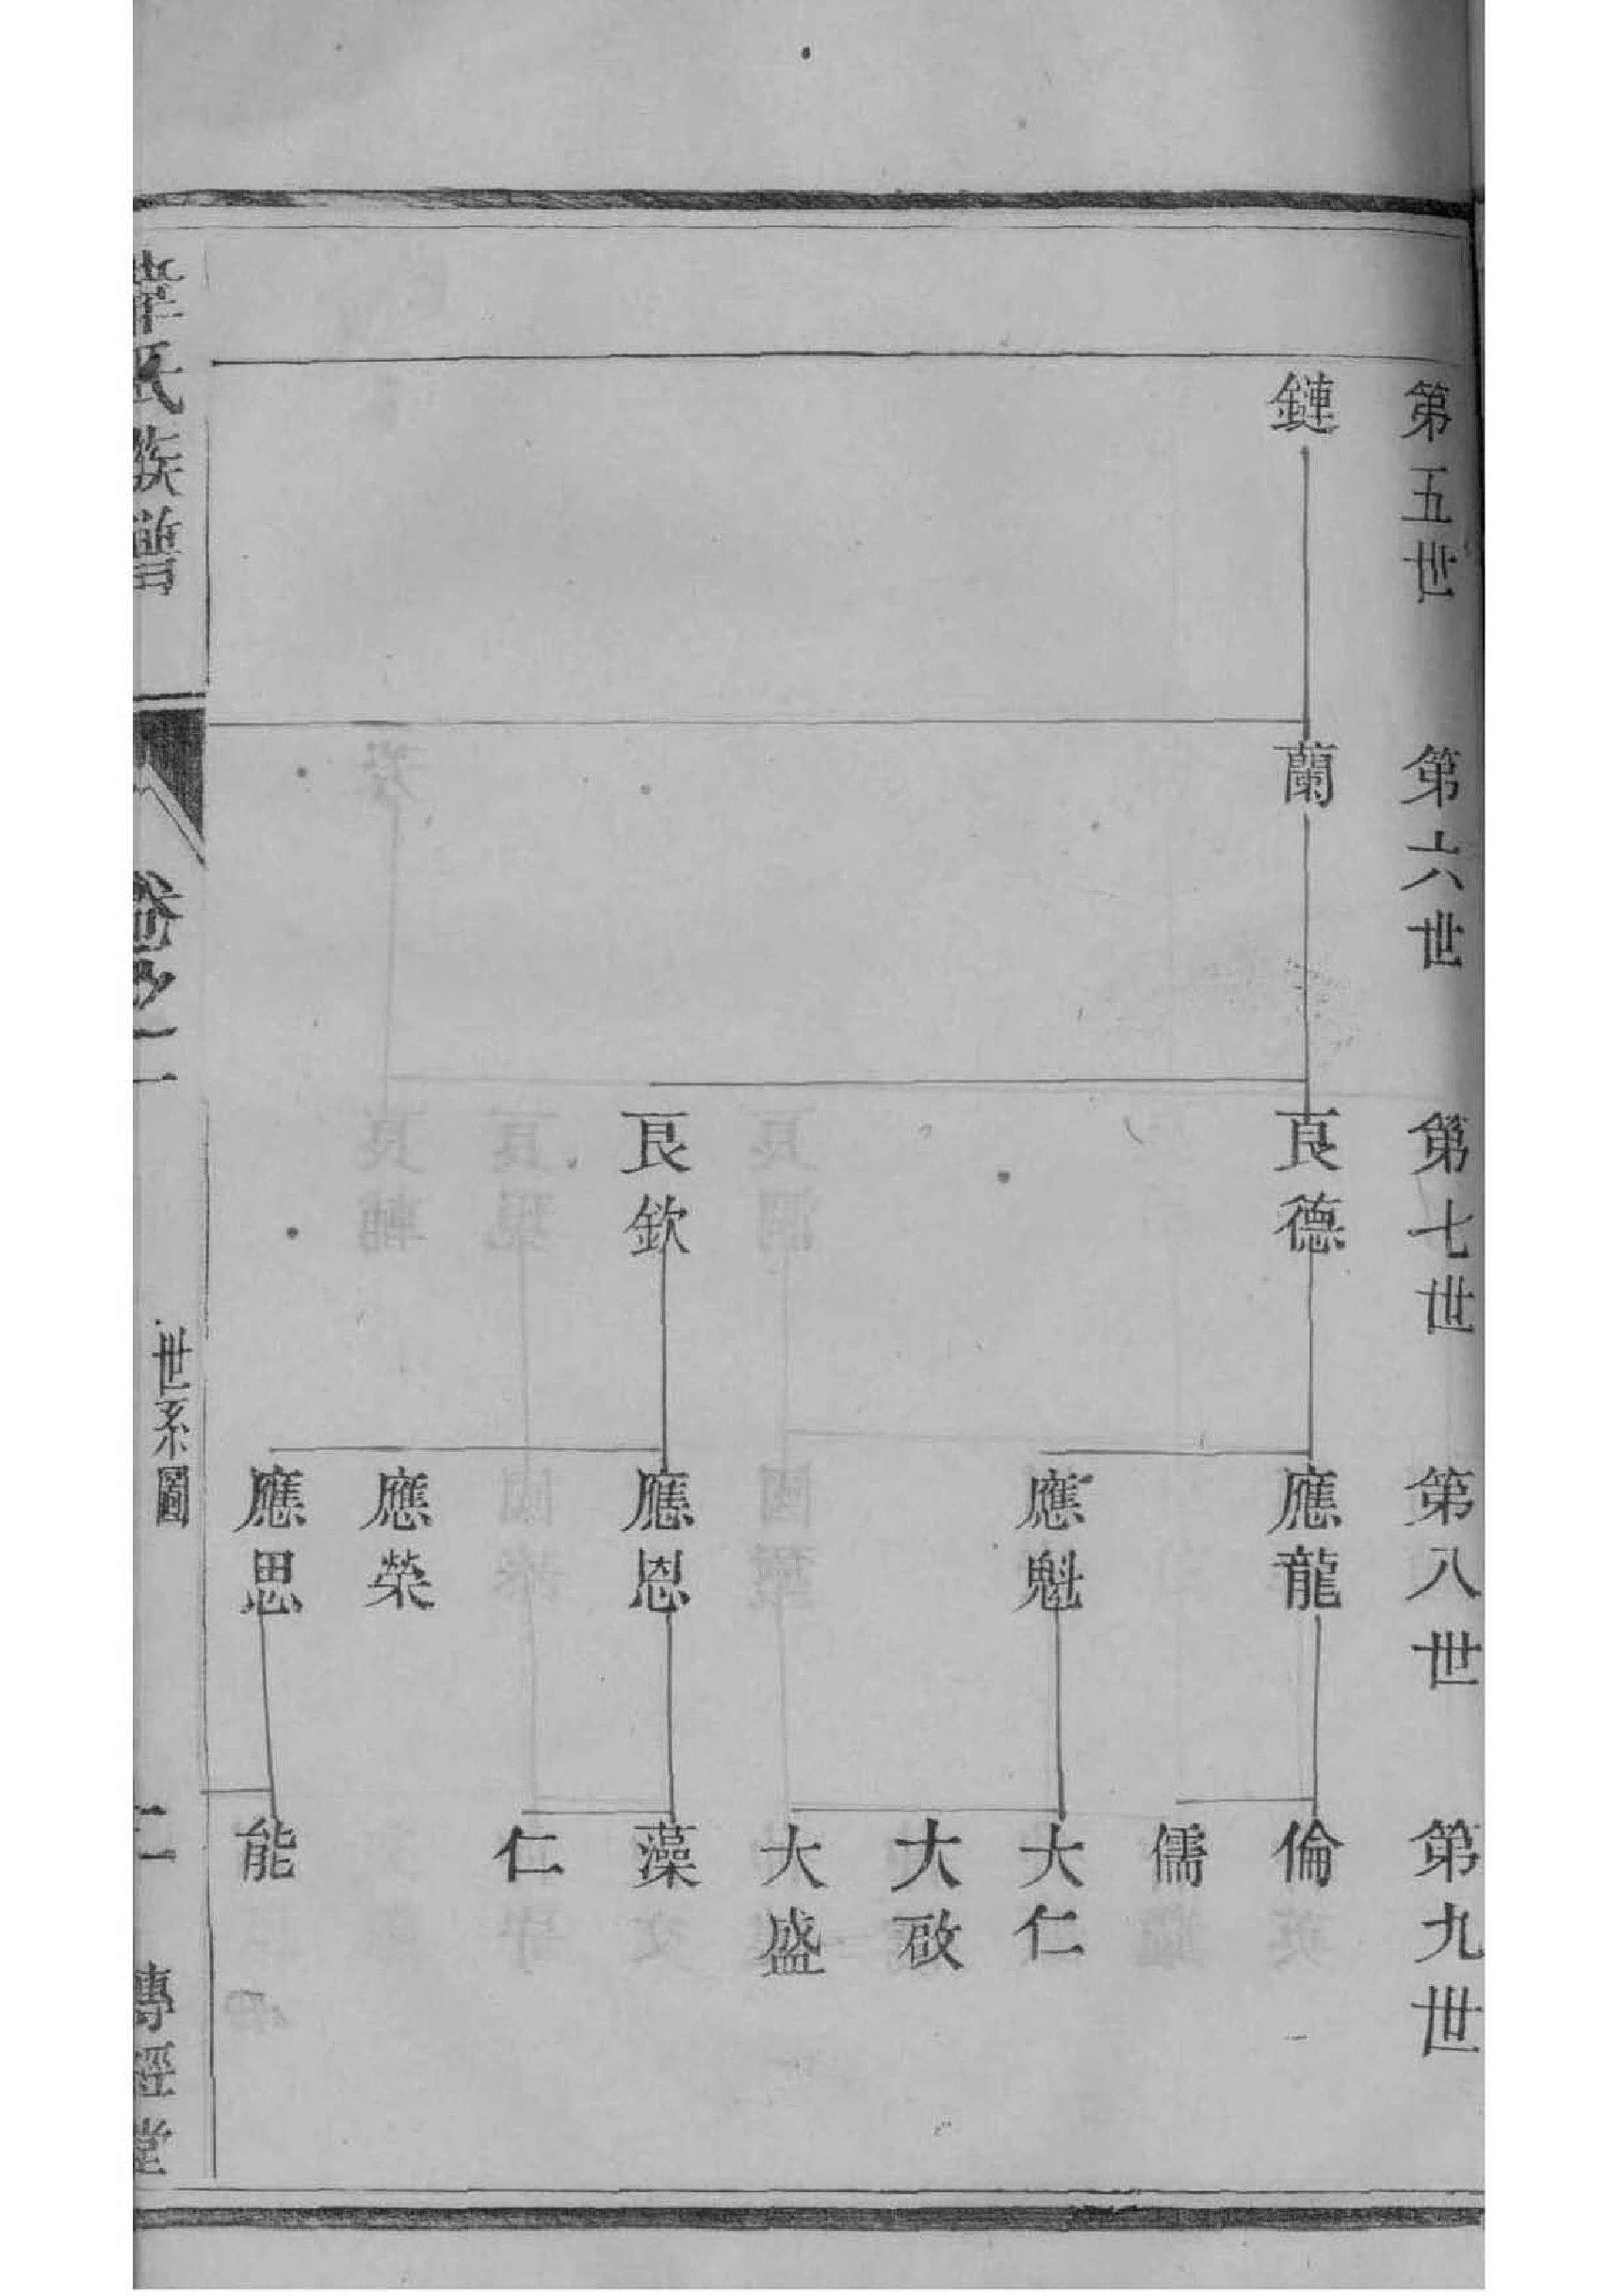 第五世
鏈
第六世
蘭
第七世
良德
良欽
第八世
應龍
應魁
應恩
應榮
應思
第九世
倫
儒
大仁
大啟
大盛
藻
仁
能
韋氏族譜
卷之一
世系圖
二
傳經堂